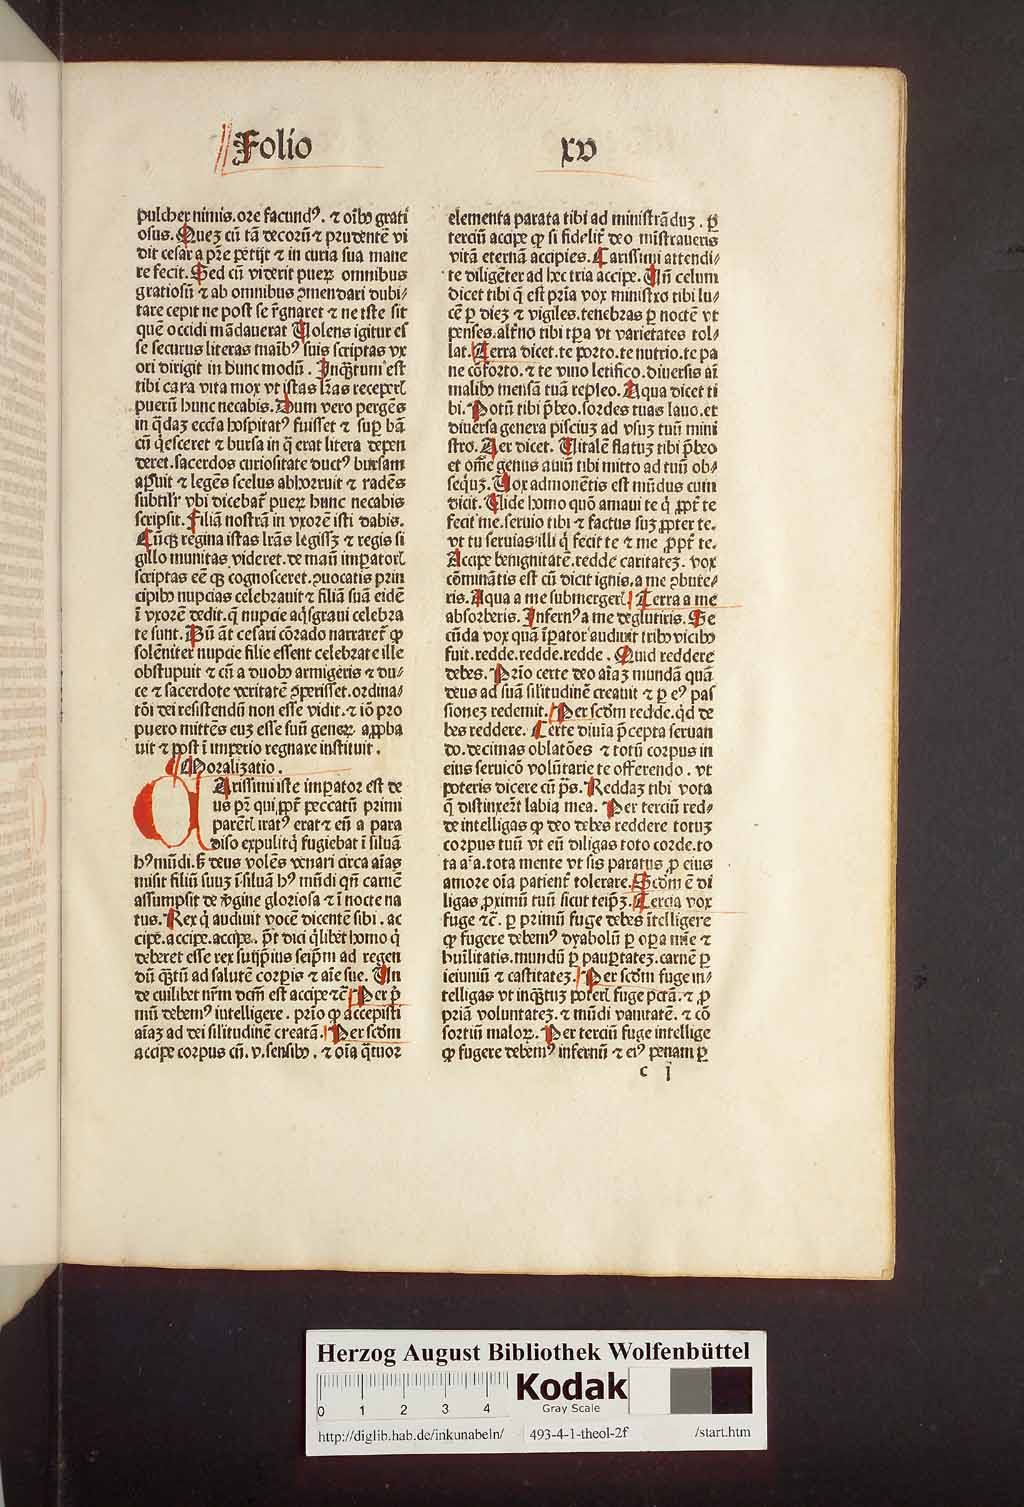 Folio
xv
pulcher nimis.ore facundꝰ. ⁊ oĩbꝯ grati
osus. Quez cũ tã decorũ ⁊ prudentẽ vi
dit cesar a pr̃e petijt ⁊ in curia sua mane
re fecit. Sed cũ viderit pueꝝ omnibus
gratiosũ ⁊ ab omnibus ꝯmendari dubi⸗
tare cepit ne post se r̃gnaret ⁊ ne iste sit
quẽ occidi mãdauerat Uolens igitur es
se securus literas maĩbꝰ suis scriptas vx
ori dirigit in hunc modũ. Inqꝫtum est
tibi cara vita mox vt istas lr̃as receperl̃
puerũ hunc necabis. Dum vero pergẽs
in qͥdaz eccl̃ia hospitatꝰ fuisset ⁊ suꝑ bã
cũ qͥesceret ⁊ bursa in qͣ erat litera depen
deret.sacerdos curiositate ductꝰ bursam
aꝑuit ⁊ legẽs scelus abhorruit ⁊ radẽs
subtilr̃ vbi dicebat̃ pueꝝ hunc necabis
scripsit. Filiã nostrã in vxorẽ isti dabis.
Cũqꝫ regina istas lr̃as legissꝫ ⁊ regis si
gillo munitas videret. de manũ imꝑatorl̃
scriptas eẽ qꝫ cognosceret. ꝯuocatis prin
cipibꝯ nupcias celebrauit ⁊ filiã suã eidẽ
ĩ vxorẽ dedit. q̃ nupcie aqͥsgrani celebra
te sunt. Dũ aũt cesari cõrado narraret̃ ꝙ
solẽniter nupcie filie essent celebrate ille
obstupuit ⁊ cũ a duobꝯ armigeris ⁊ du⸗
ce ⁊ sacerdote veritatẽ ꝯperisset. ordina⸗
tõi dei resistendũ non esse vidit. ⁊ iõ pro
puero mittẽs euz esse suũ geneꝝ. approba
uit ⁊ post ĩ imperio regnare instituit.
Moralizatio.
CArissimi iste imꝑator est de
us pr̃ qui ꝓpt̃ peccatũ primi
parẽtl̃ iratꝰ erat ⁊ eũ a para
diso expulit qͥ fugiebat ĩ siluã
hꝰ mũdi. ß deus volẽs venari circa aĩas
misit filiũ suuz ĩ siluã hꝰ mũdi qñ carnẽ
assumpsit de ṽgine gloriosa ⁊ ĩ nocte na
tus. Rex qͥ audiuit vocẽ dicentẽ sibi. ac
cipe.accipe.accipe. pt̃ dici qͥlibet homo qͥ
deberet esse rex suijp̃ius seip̃m ad regen
dũ qꝫtũ ad salutẽ corꝑis ⁊ aĩe sue. Un
de cuilibet nr̃m dcm̃ est accipe ⁊c̃ Per p̃
mũ debemꝰ intelligere. prĩo ꝙ accepisti
aĩaz ad dei sil̃itudinẽ creatã. Per scd̃m
accipe corpus cũ. v. sensibꝯ. ⁊ oĩa qͣtuor
elementa parata tibi ad ministrãduz. ꝑ
terciũ accipe ꝙ si fidelit̃ deo mĩstraueris
vitã eternã accipies. Carissimi attendi⸗
te diligẽter ad hec tria accipe. Un celum
dicet tibi q̃ est prĩa vox ministro tibi lu⸗
cẽ ꝑ diez ⁊ vigiles. tenebras ꝑ noctẽ vt
penses. alt̃no tibi tp̃a vt varietates tol⸗
lat. Terra dicet. te porto. te nutrio. te pa
ne cõforto. ⁊ te vino letifico. diuersis aĩ
malibꝯ mensã tuã repleo. Aqua dicet ti
bi. Potũ tibi p̃beo. sordes tuas lauo. et
diuersa genera pisciuz ad vsuz tuũ mini
stro. Aer dicet. Uitalẽ flatuz tibi p̃beo
et om̃e genus auiũ tibi mitto ad tuũ ob⸗
sequꝫ. Uox admonẽtis est mũdus cum
dicit. Uide homo quõ amaui te qͥ ꝓpt̃ te
fecit me. seruio tibi ⁊ factus suz ꝓpter te.
vt tu seruias illi qͥ fecit te ⁊ me ꝓpt̃ te.
Accipe benignitatẽ. redde caritatez. vox
cõminãtis est cũ dicit ignis. a me ꝯbure⸗
ris. Aqua a me submergerl̃. Terra a me
absorberis. Infernꝰ a me deglutiris. Se
cũda vox quã ĩꝑator audiuit tribꝯ vicibꝯ
fuit. redde. redde. redde. Quid reddere
debes. Prĩo certe deo aĩaz mundã quã
deus ad suã sil̃itudinẽ creauit ⁊ ꝑ eꝰ pas
sionez redemit. Per scd̃m redde. qͥd de
bes reddere. Certe diuĩa p̃cepta seruan
do. decimas oblatões ⁊ totũ corpus in
eius seruicõ volũtarie te offerendo. vt
poteris dicere cũ p̃s. Reddaz tibi vota
q̃ distinxer̃t labia mea. Per terciũ red⸗
de intelligas ꝙ deo debes reddere totuz
corpus tuũ vt eũ diligas toto corde. to
ta aĩa. tota mente vt sis paratus ꝓ eius
amore oĩa patient̃ tolerare. Scd̃m ẽ di
ligas ꝓximũ tuũ sicut teip̃ꝫ. Tercia vox
fuge ⁊c̃. ꝑ primũ fuge debes ĩtelligere
ꝙ fugere debemꝰ dyabolũ ꝑ oꝑa mĩe ⁊
huilitatis. mundũ ꝑ pauꝑtatez. carnẽ ꝑ
ieiuniũ ⁊ castitatez. Per scd̃m fuge in⸗
telligas vt inqꝫtuz poterl̃ fuge pctã. ⁊ ꝓ
priã voluntatez. ⁊ mũdi vanitatẽ. ⁊ cõ
sortiũ maloꝝ. Per terciũ fuge intellige
ꝙ fugere debemꝰ infernũ ⁊ eiꝰ penam ꝑ
c j
Herzog August Bibliothek Wolfenbüttel
0 1 2 3 4
Kodak
Gray Scale
http://diglib.hab.de/inkunabeln/ 493-4-1-theol-2f /start.htm